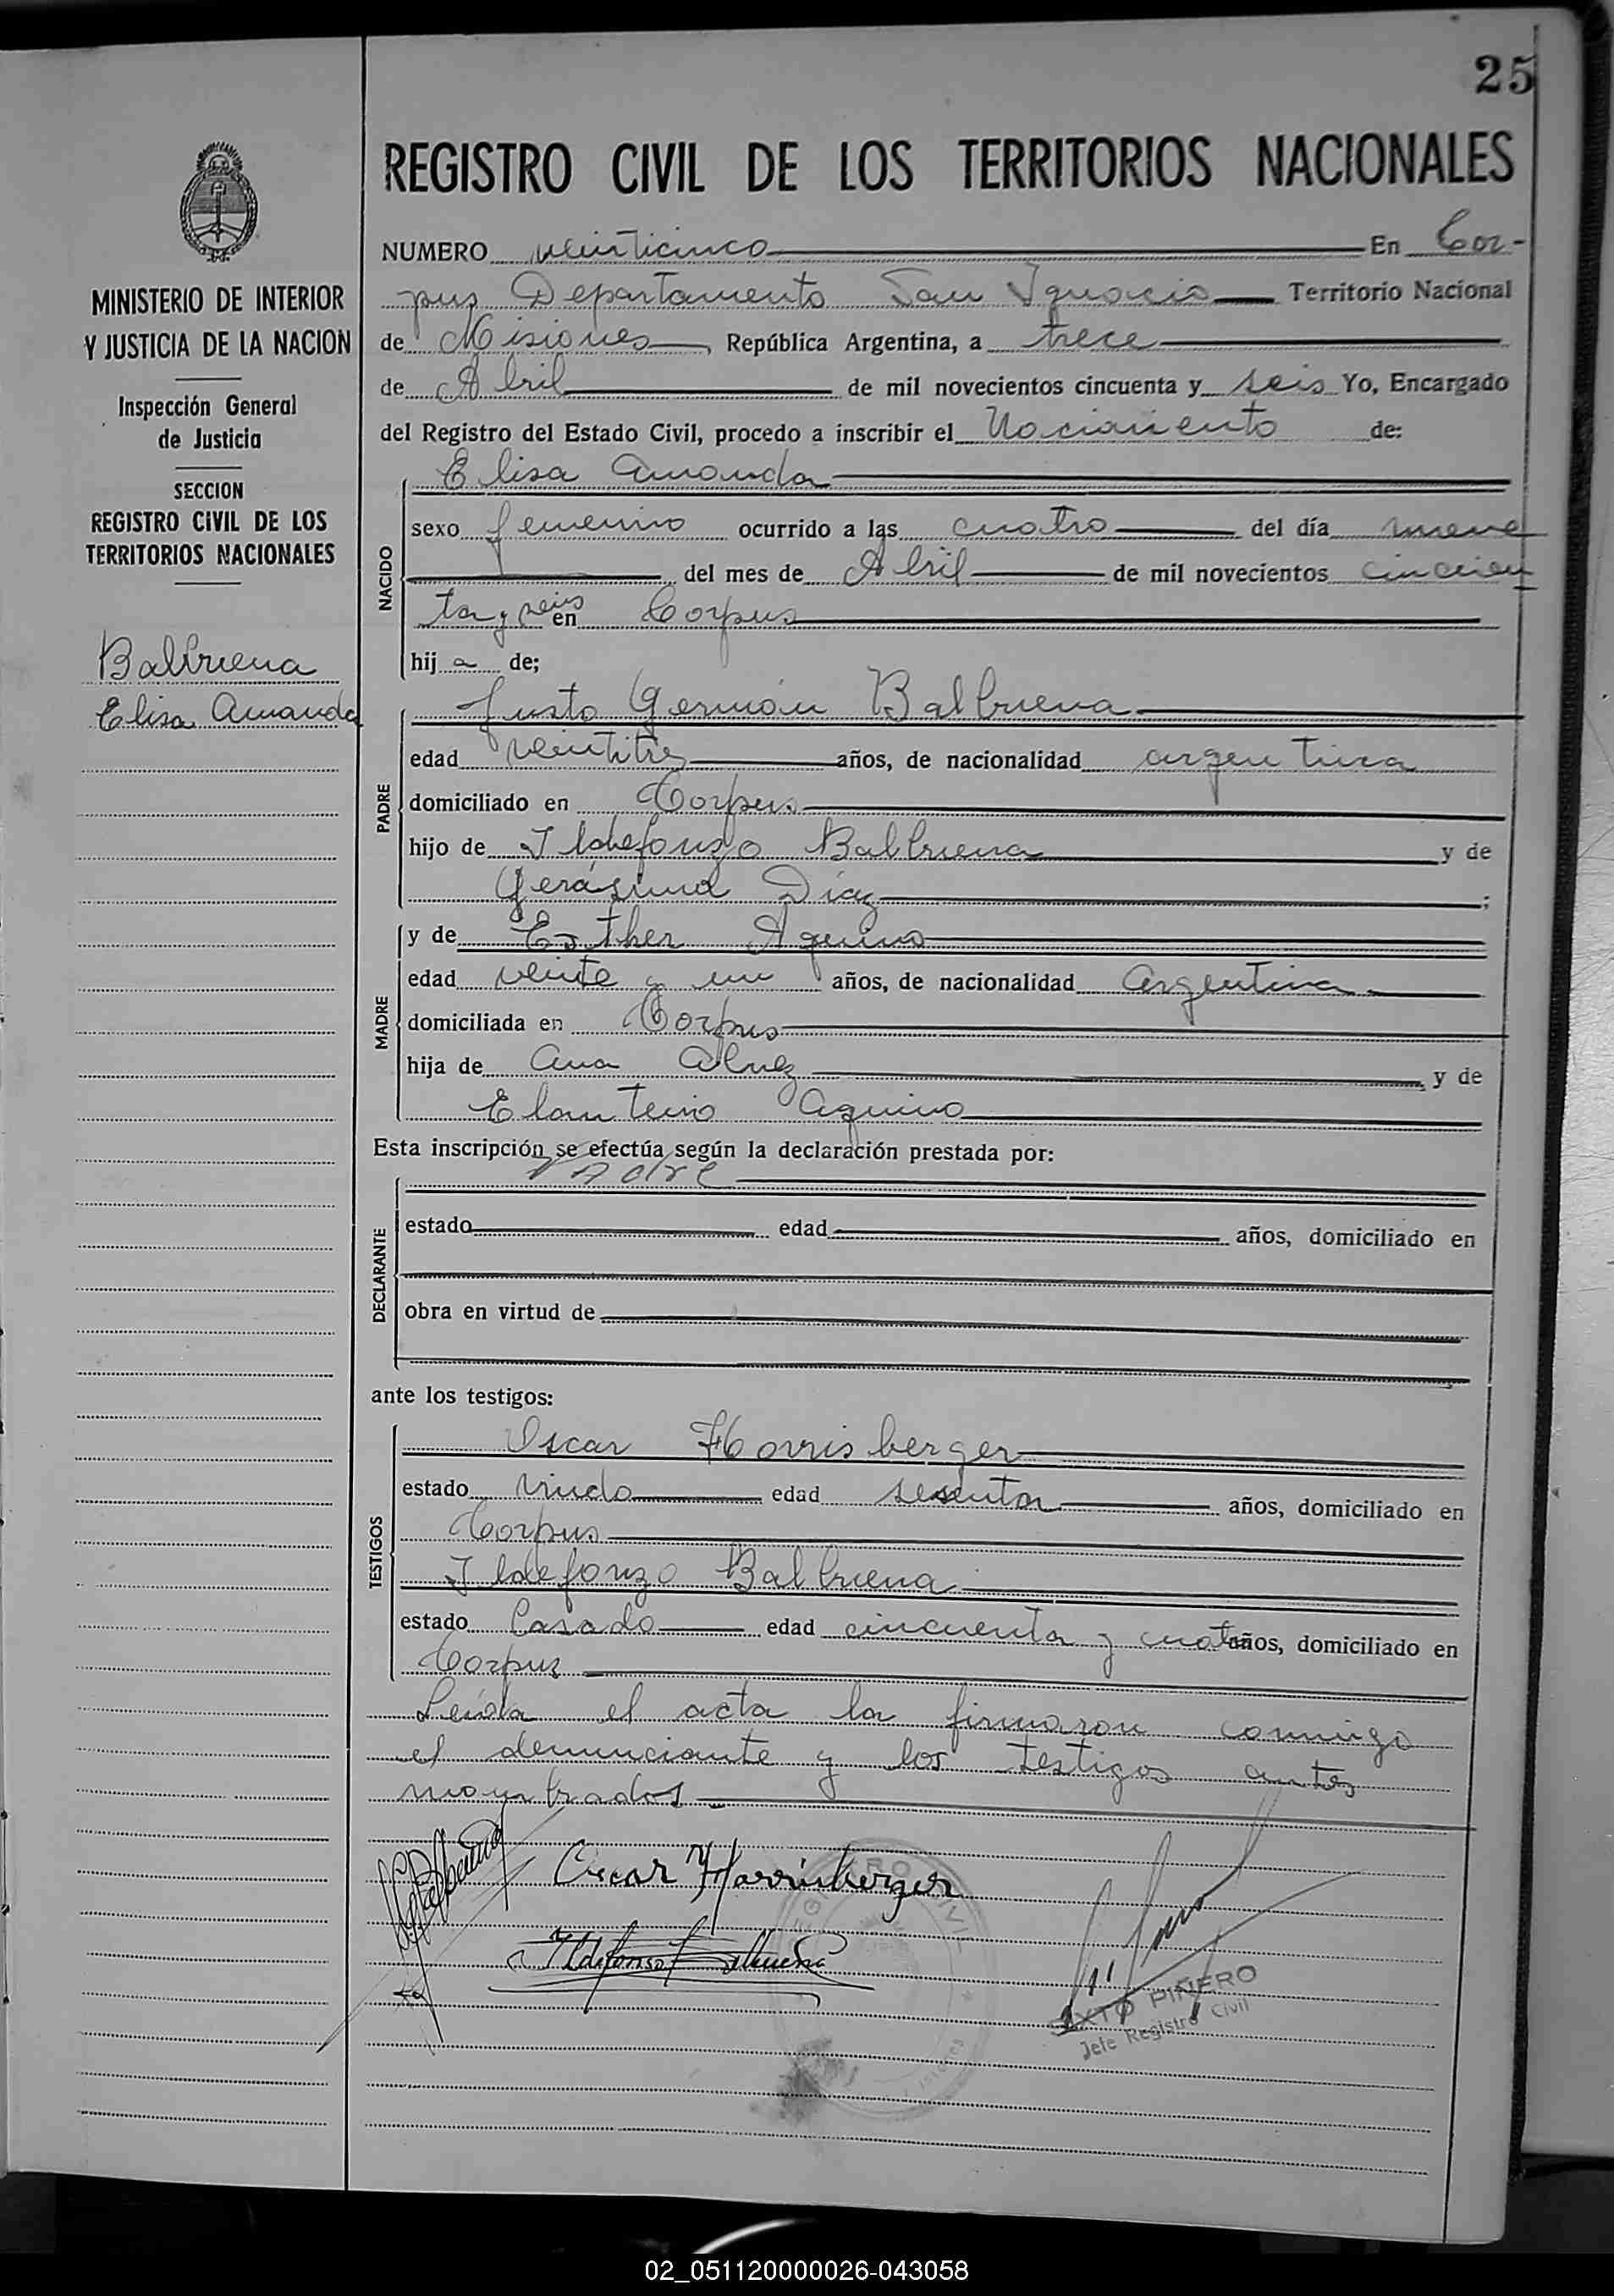 25
REGISTRO CIVIL DE LOS TERRITORIOS NACIONALES
MINISTERIO DE INTERIOR
Y JUSTICIA DE LA NACION
Inspección General
de Justicia
SECCION
REGISTRO CIVIL DE LOS
TERRITORIOS NACIONALES
Balbuena
Elisa Amanda
NUMERO veinticinco En Cor-
pus Departamento San Ignacio Territorio Nacional
de Misiones, República Argentina, a trece
de Abril de mil novecientos cincuenta y seis Yo, Encargado
del Registro del Estado Civil, procedo a inscribir el Nacimiento de:
NACIDO
Elisa Amanda
sexo femenino ocurrido a las cuatro del día nueve
del mes de Abril de mil novecientos cincuen
ta y seis en Corpus
hija de;
PADRE
Justo Germán Balbuena
edad veintitrés años, de nacionalidad argentina
domiciliado en Corpus
hijo de Ildefonzo Balbuena y de
Gerásima Díaz;
MADRE
y de Esther Aquino
edad veinte y un años, de nacionalidad Argentina
domiciliada en Corpus
hija de Ana y de
Aquino
Esta inscripción se efectúa según la declaración prestada por:
DECLARANTE
Padre
estado edad años, domiciliado en
obra en virtud de
ante los testigos:
TESTIGOS
Oscar Horrisberger
estado viudo edad sesenta años, domiciliado en
Corpus
Ildefonzo Balbuena
estado Casado edad cincuenta y cuatro años, domiciliado en
Corpus
Leída el acta la firmaron conmigo
el denunciante y los testigos antes
mombrados
Oscar Harrisberger
Ildefonso Balbuena
SIXTO PIÑERO
Jefe Registro Civil
02_051120000026-043058